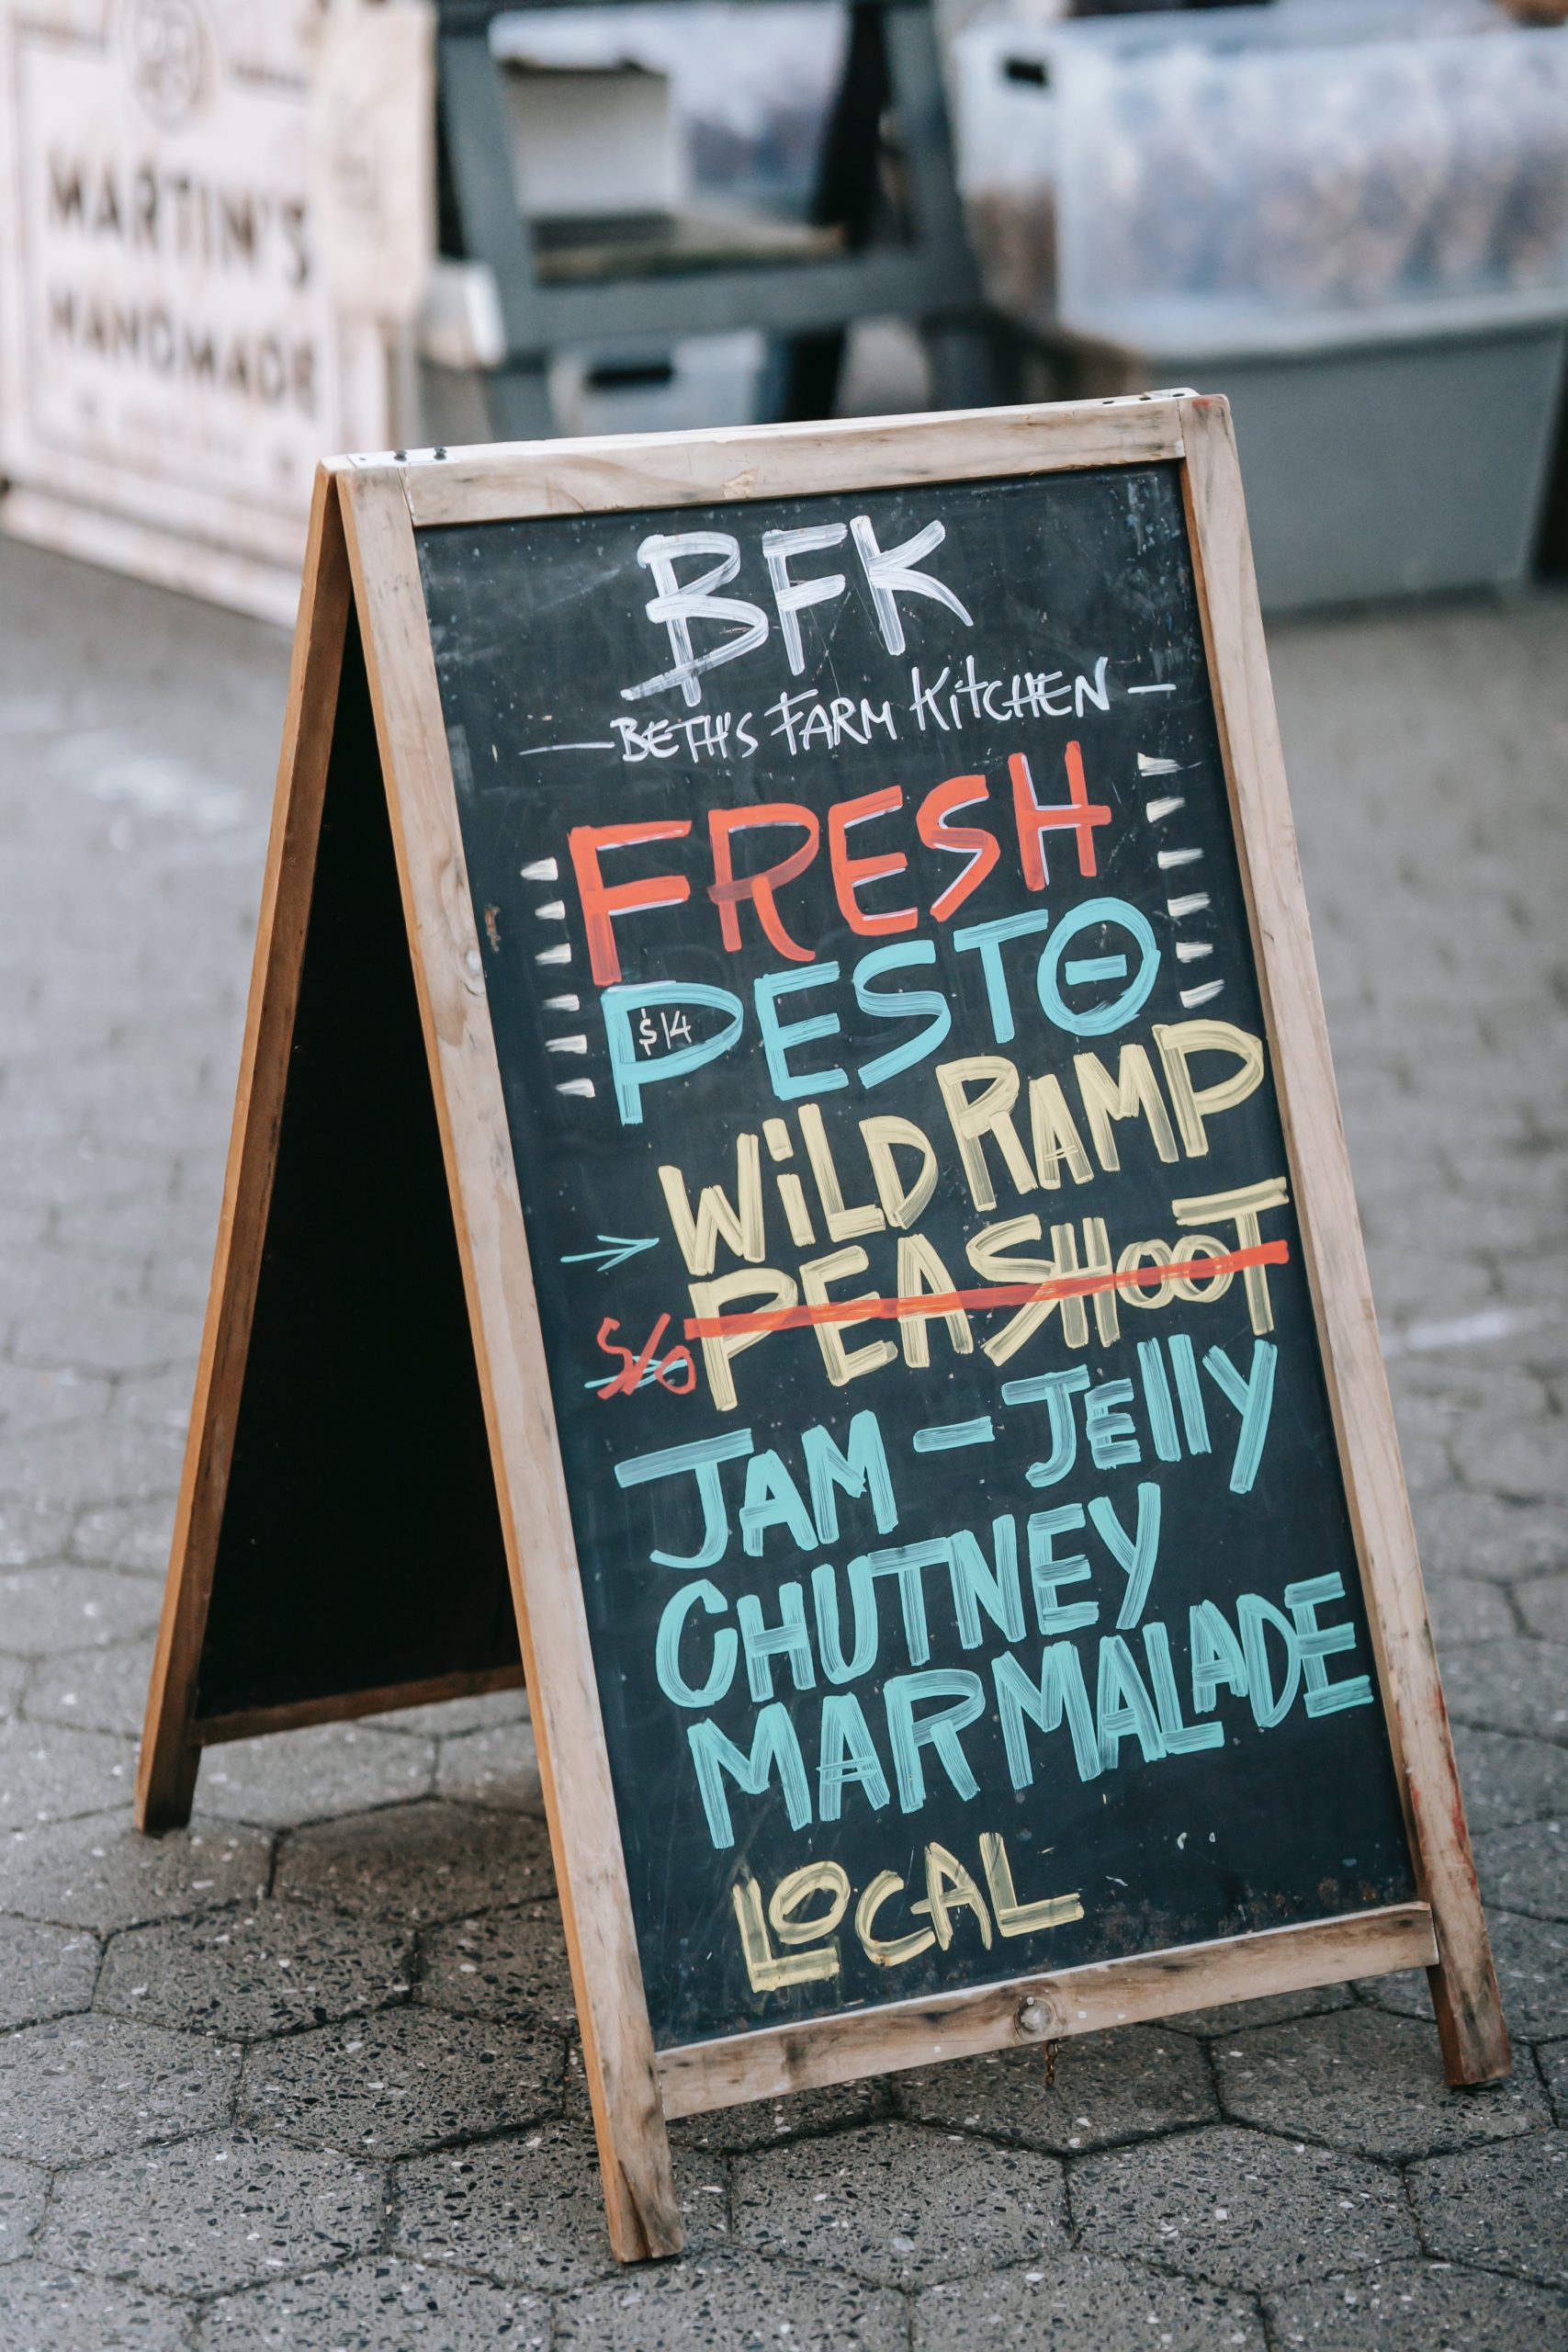 MARTIN'S
HANDMADE
BFK
— BETH'S FARM KITCHEN —
FRESH
PESTO
$14
→ WILD RAMP
S/O → PEASHOOT
JAM - JELLY
CHUTNEY
MARMALADE
LOCAL